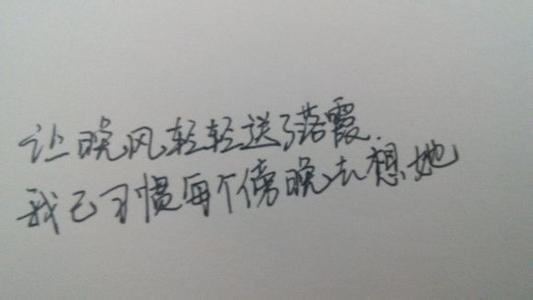 让晚风轻轻送了落霞.
我已习惯每个傍晚去想她